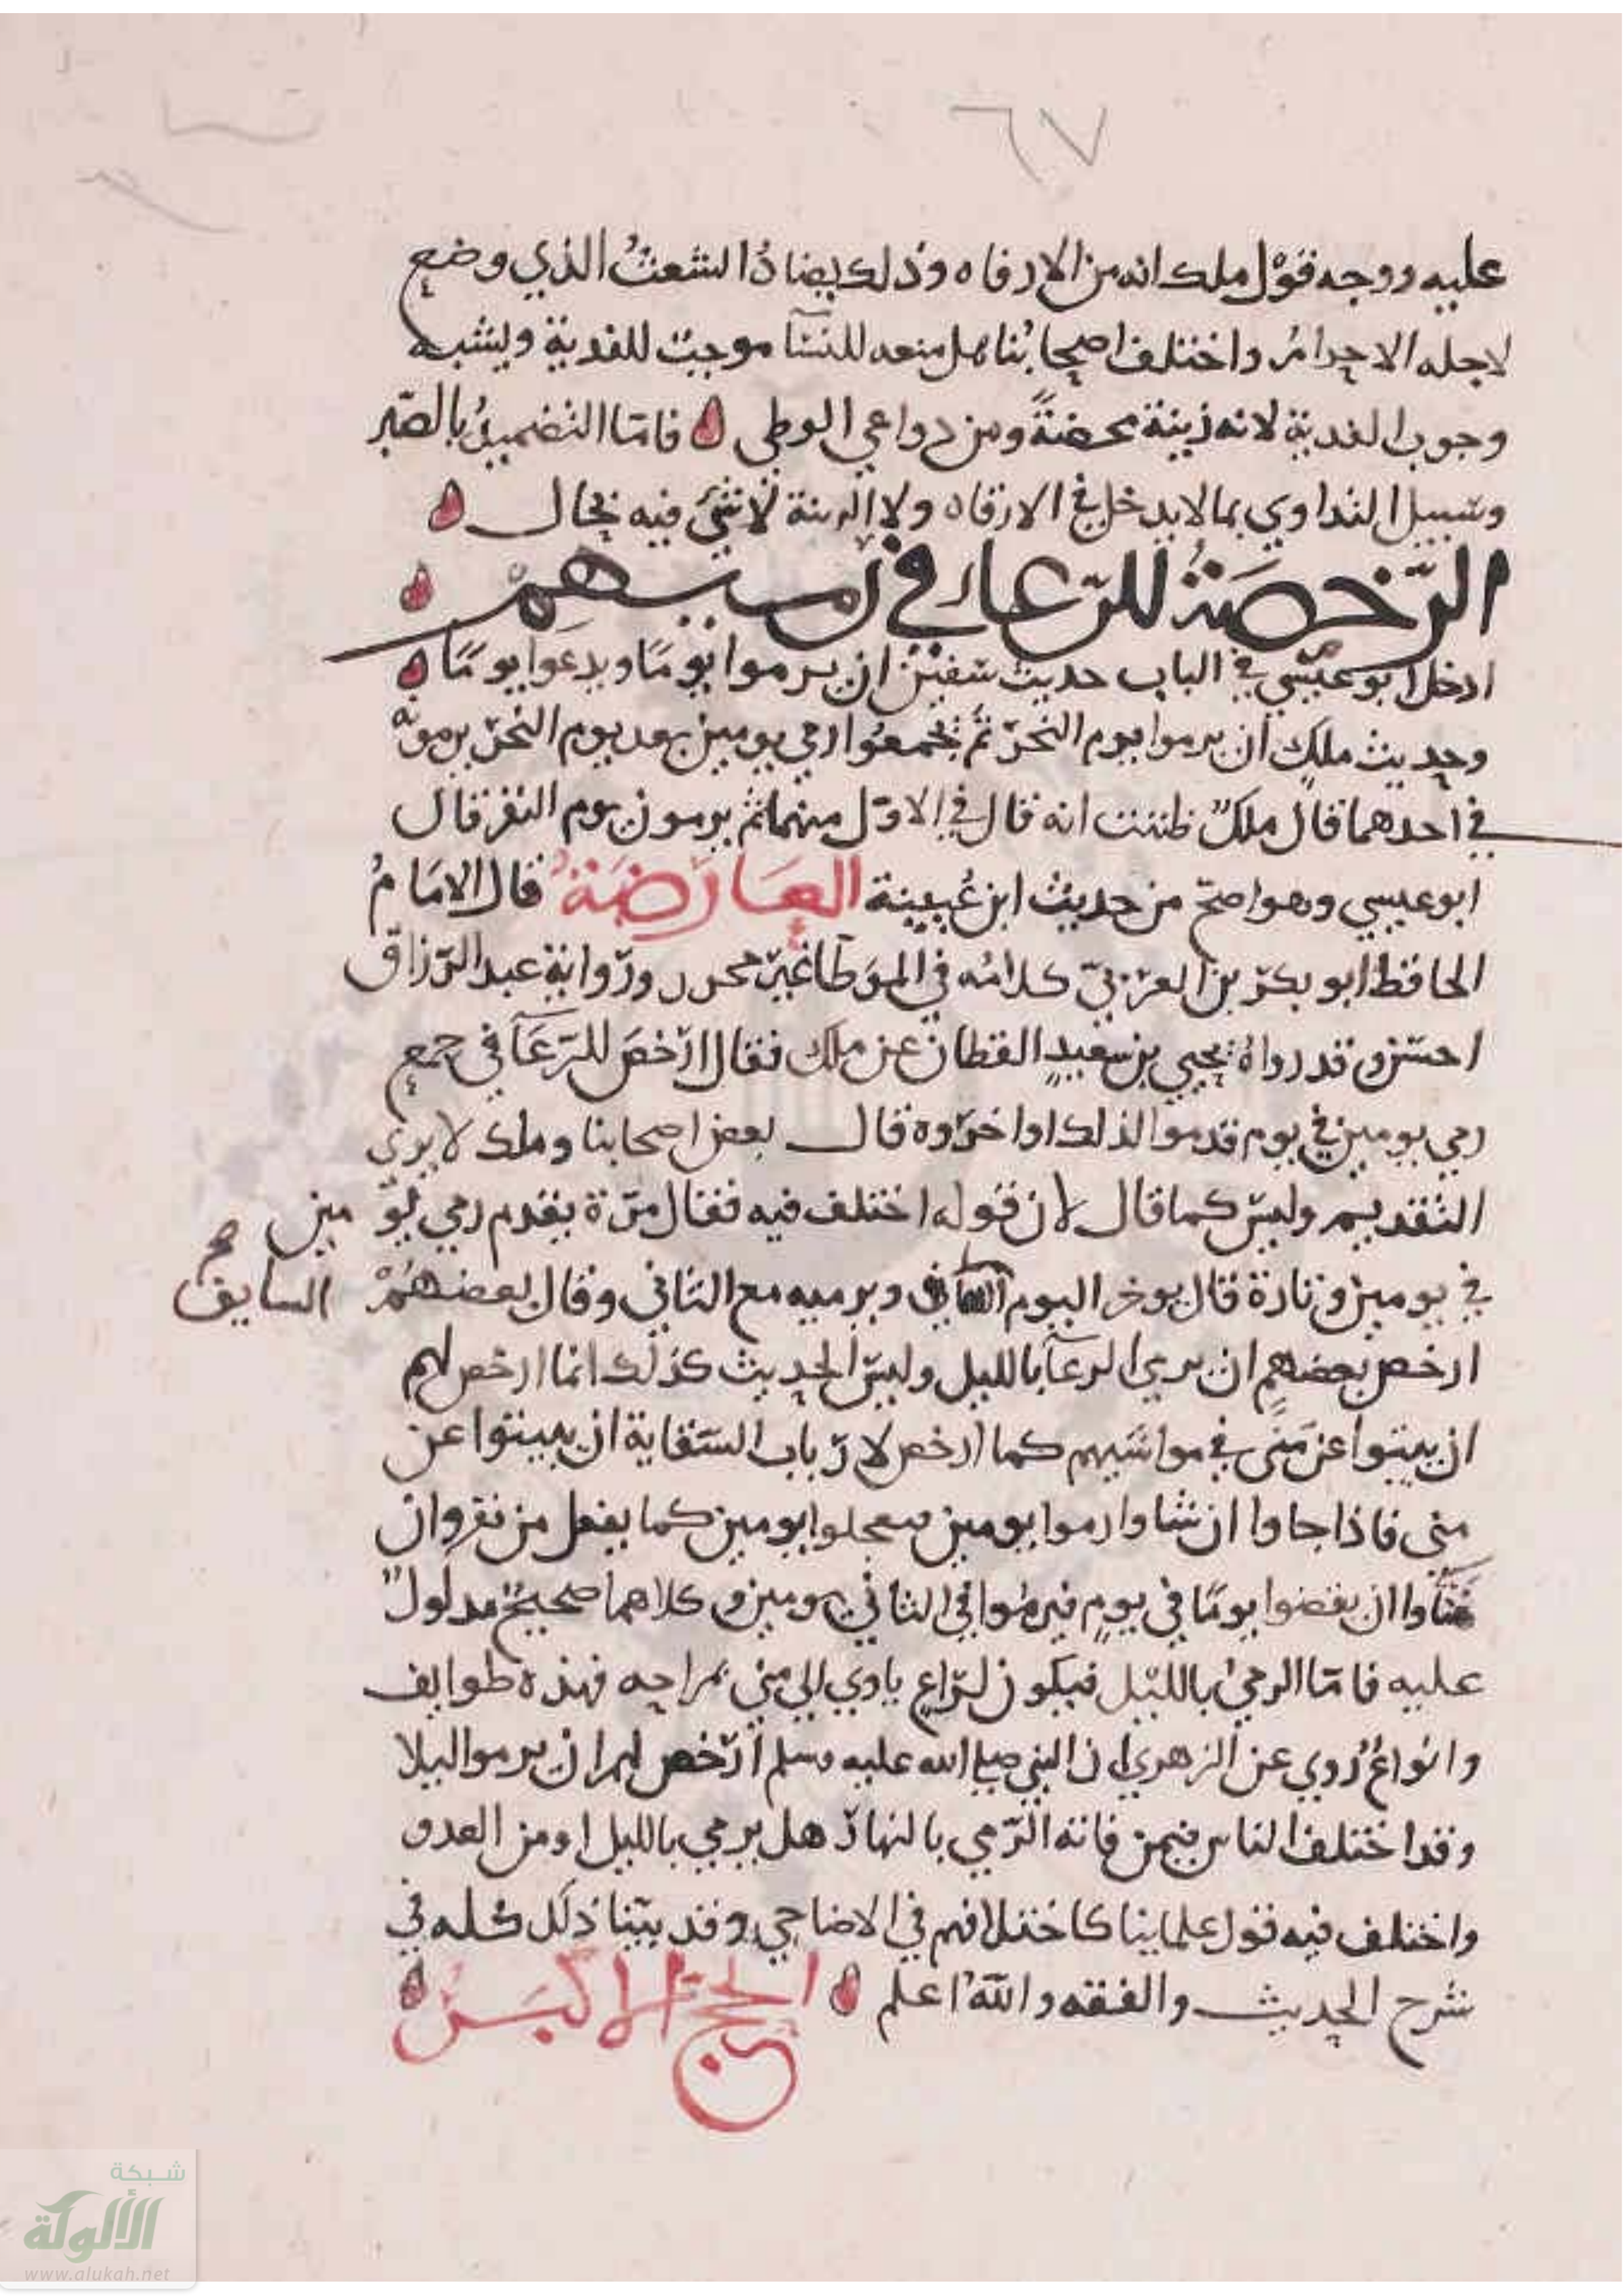 ٦٧
عليه ووجه قوْل ملك انه من الارفاه وذلك يضادُ الشعثُ الذي وضع
لاجله الاحرامُ واختلف اصحابُنا هل منعه للنسآ موجبٌ للفدية ويشبه
وجوب الفدية لانه زينة محضةً ومن دواعي الوطي فامّا التضميدُ بالصّبر
وسبيل التداوي بما لا يدخل في الارفاه ولا الزينة لا شيْ فيه بحال
الرّخصَةُ للرّعاء في رميهمْ
ادخل ابو عيسَي في الباب حديث سفين ان يرموا يومًا ويدعَوا يومًا
وحديث ملكٍ ان يرموا يوم النحرّ ثم يجمعُوا رمي يومين بعد يوم النحرّ يرمونَه
في احدهما قال ملكٌ ظننت انه قال في الاوّل منهما ثم يرمون يوم النفر قال
ابو عيسي وهو اصحّ من حديث ابن عُيينة العَارَضَةُ قال الامَامُ
الحافظ ابو بكرّ بن العرّبيّ كلامُه في الموَطا غيرّ محرر ورّواية عبد الرّزاق
احسَن وقد رواهُ يحيي بن سعيدٍ القطان عن ملك فقال ارّخصَ للرّعَآ في جمع
رمي يومين في يوم قدموا لذلك او اخرّوه قال بعض اصحابنا وملك لا يرَي
التقديم وليسَ كما قال لان قوله اختلف فيه فقال مرّة يقدم رمي يوّمين
في يومين وتارة قال يوخر اليوم ويرميه مع الثاني وقال بعضهُمْ السايق صح
ارخص بعضهمٍ ان يرمي الرعآ بالليل وليسَ الحديث كذلك انما ارخص لهم
ان يبيتوا عن مَنًي في مواشيهم كما ارخص لارّباب السّقاية ان يبيتوا عن
مني فاذا جاوا ان شاوا رموا يومين معجلوا يومين كما يفعل من نفر وان
شآوا ان يقضوا يومًا في يومٍ فيرمُوا في الثاني يومين وكلاهما صحيحٌ مدلولٌ
عليه فامّا الرميُ بالليْل فيكون لرّاعٍ ياوي الي مني بمراحه فهذه طوايف
وانوَاعٌ رُوي عن الزهري ان النبي صلي الله عليه وسلم ارّخص لهم ان يرموا ليلا
وقد اختلف الناس فيمن فاته الرّمي بالنهارّ هل يرمي بالليل او من العدو
واختلف فيه قول علماينا كاختلافهم في الاضاحي وقد بيّنا ذلَك كله في
شرح الحديث والفقه واللّهُ اعلم الحجّ الاكبَرُ
شبكة
الألوكة
www.alukah.net